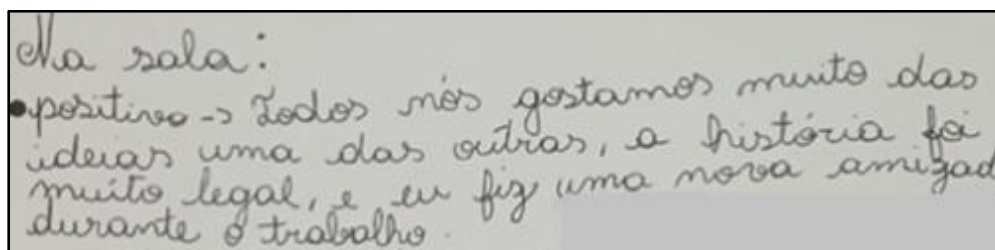 Na sala:
•positivo -> Todos nós gostamos muito das
ideias uma das outras, a história foi
muito legal, e eu fiz uma nova amizad
durante o trabalho.